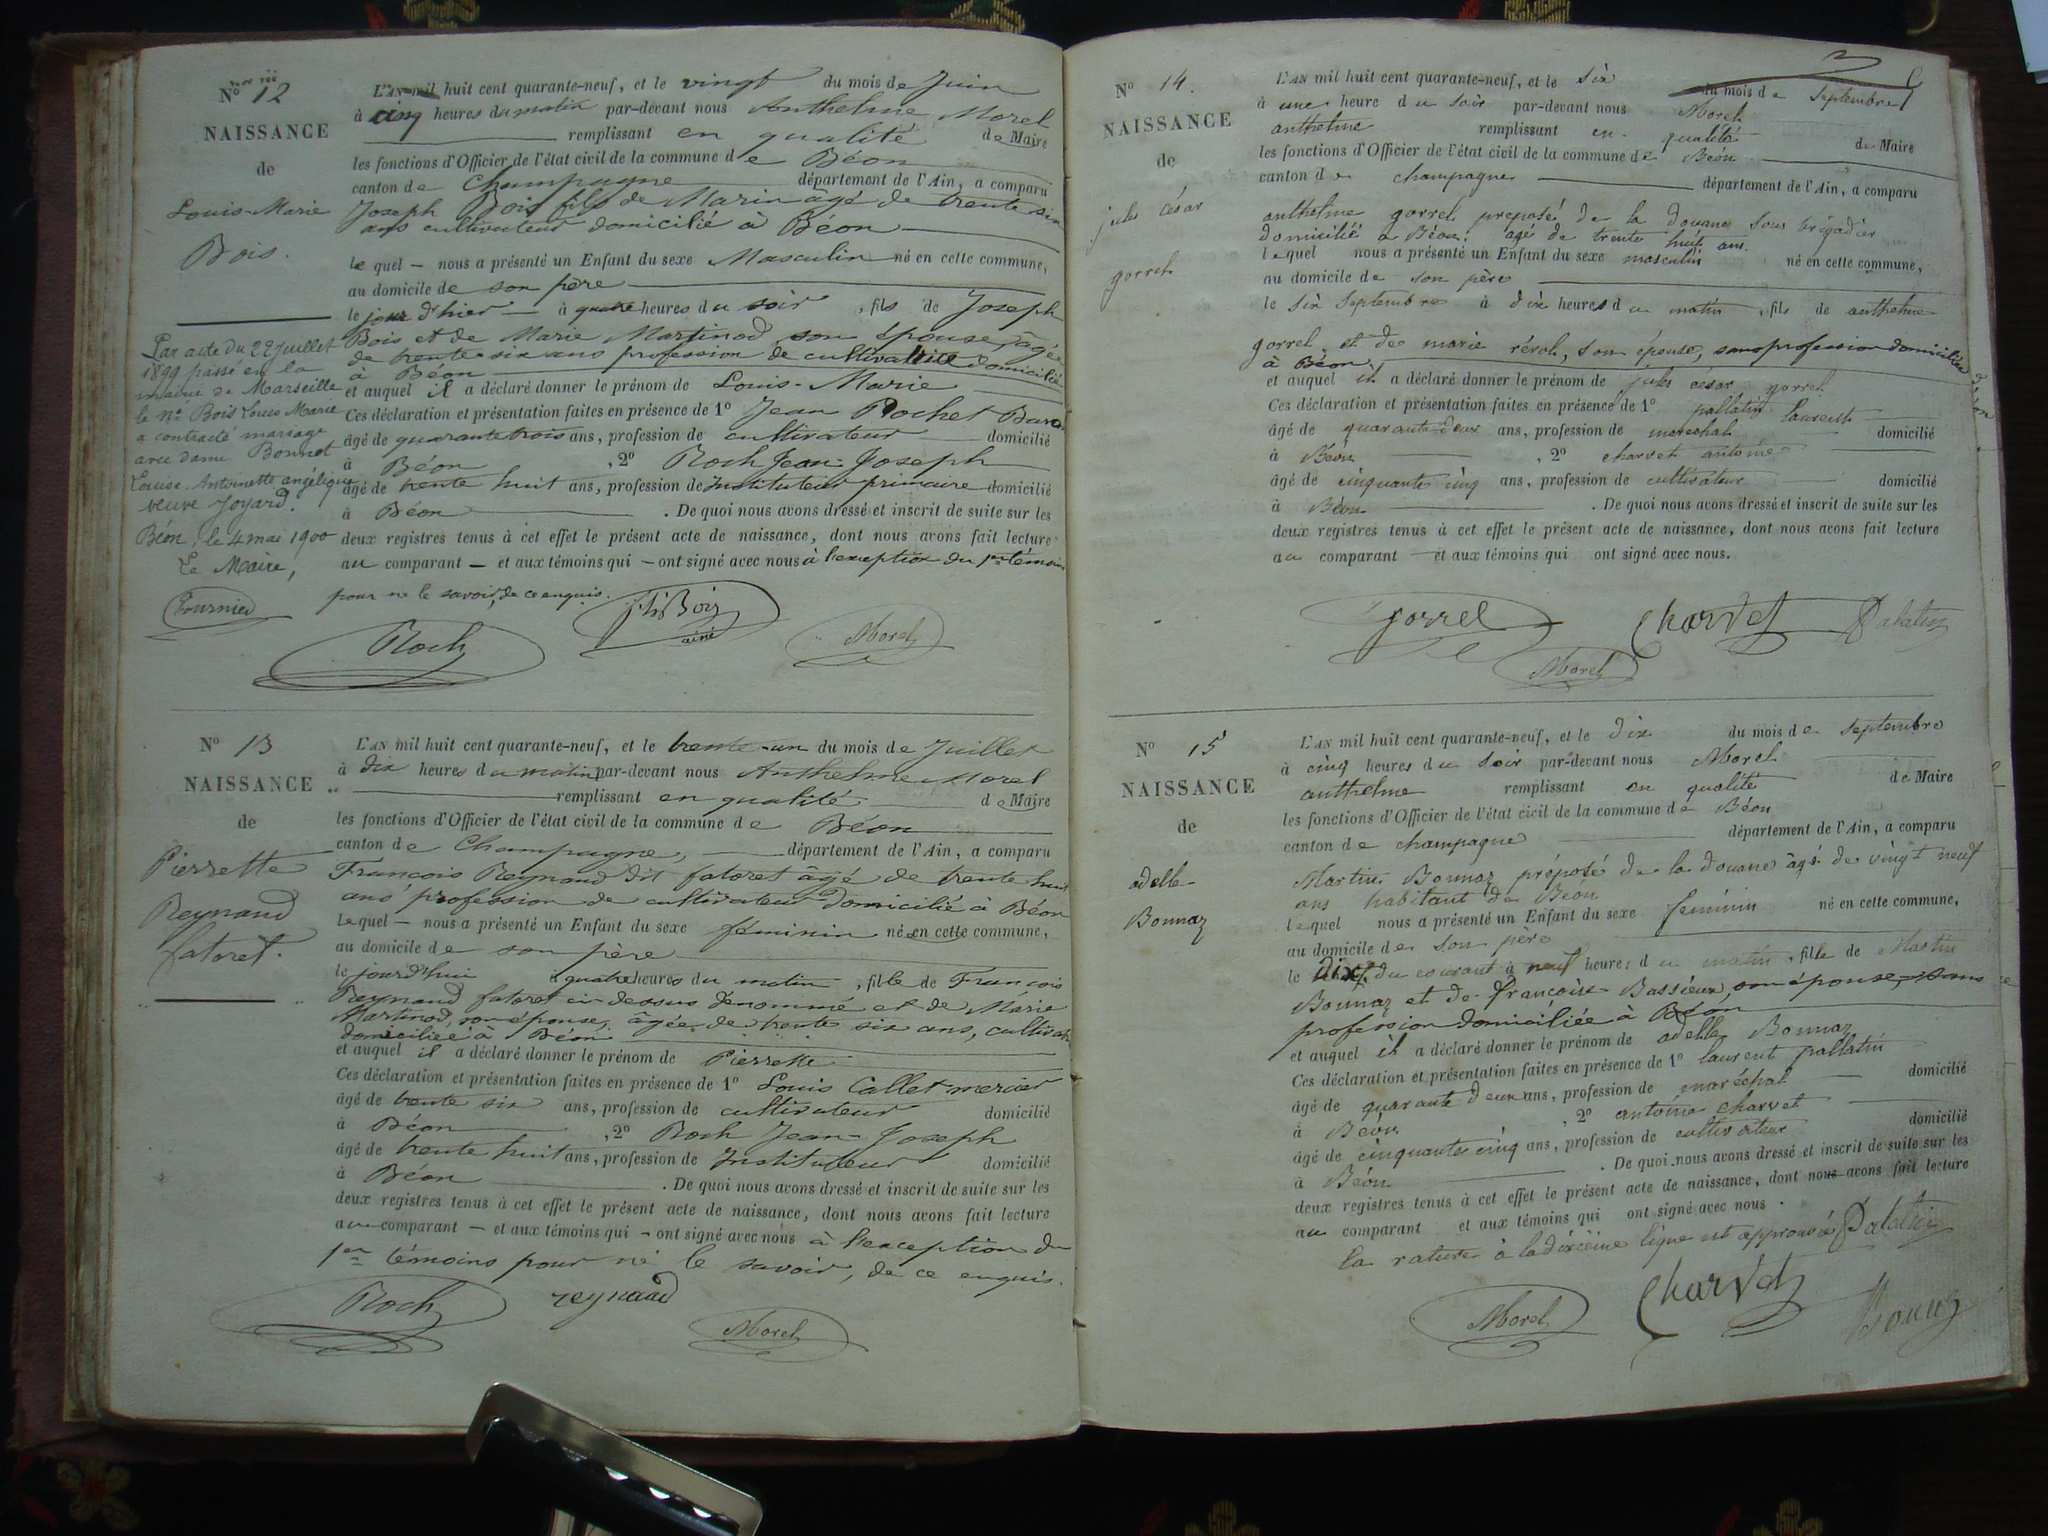 N° 12
NAISSANCE
de
Louis-Marie
Bois.
Par acte du 22 juillet
1899 passé en la
mairie de Marseille
le né Bois Louis Marie
a contracté mariage
avec dame Bonnet
Louise Antoinette angélique
veuve Joyard.
Béon, le 4 mai 1900
Le Maire,
Fournier
L'AN mil huit cent quarante-neuf, et le vingt du mois de Juin
à cinq heures du matin par-devant nous Anthelme Morel
remplissant en qualité de Maire
les fonctions d'Officier de l'état civil de la commune de Béon
canton de Champagne département de l'Ain, a comparu
Joseph Bois fils de Marin âgé de trente six
ans cultivateur domicilié à Béon
lequel – nous a présenté un Enfant du sexe Masculin né en cette commune,
au domicile de son père
le jour d'hier à quatre heures du soir, fils de Joseph
Bois et de Marie Martinod son épouse, âgée
de trente-six ans profession de cultivatrice domiciliée
à Béon
et auquel il a déclaré donner le prénom de Louis-Marie
Ces déclaration et présentation faites en présence de 1° Jean Rochet
âgé de quarante trois ans, profession de cultivateur domicilié
à Béon, 2° Roch Jean-Joseph
âgé de trente huit ans, profession de Instituteur primaire domicilié
à Béon. De quoi nous avons dressé et inscrit de suite sur les
deux registres tenus à cet effet le présent acte de naissance, dont nous avons fait lecture
au comparant – et aux témoins qui – ont signé avec nous à l'exception du 1er témoin
pour ne le savoir, de ce enquis.
Roch
Bois
ainé
Morel
N° 13
NAISSANCE
de
Pierrette
Reynaud
fatoret.
L'AN mil huit cent quarante-neuf, et le trente-un du mois de Juillet
à dix heures du matin par-devant nous Anthelme Morel
remplissant en qualité de Maire
les fonctions d'Officier de l'état civil de la commune de Béon
canton de Champagne, département de l'Ain, a comparu
François Reynaud dit fatoret âgé de trente huit
ans profession de cultivateur domicilié à Béon
lequel – nous a présenté un Enfant du sexe féminin né en cette commune,
au domicile de son père
le jourd'hui à quatre heures du matin, fille de François
Reynaud fatoret ci-dessus dénommé et de Marie
Martinod, son épouse, âgée de trente six ans,
domiciliée à Béon
et auquel il a déclaré donner le prénom de Pierrette
Ces déclaration et présentation faites en présence de 1° Louis Callet mercier
âgé de trente six ans, profession de cultivateur domicilié
à Béon, 2° Roch Jean-Joseph
âgé de trente huit ans, profession de Instituteur domicilié
à Béon. De quoi nous avons dressé et inscrit de suite sur les
deux registres tenus à cet effet le présent acte de naissance, dont nous avons fait lecture
au comparant – et aux témoins qui – ont signé avec nous à l'exception du
1er témoins pour ne le savoir, de ce enquis.
Roch
reynaud
Morel
N° 14.
NAISSANCE
de
jules césar
gorrel
L'AN mil huit cent quarante-neuf, et le six du mois de Septembre
à une heure du soir par-devant nous Morel
anthelme remplissant en qualité de Maire
les fonctions d'Officier de l'état civil de la commune de Béon
canton de champagne département de l'Ain, a comparu
anthelme gorrel preposé de la douane Sous brigadier
domicilié a Béon âgé de trente huit ans
lequel nous a présenté un Enfant du sexe masculin né en cette commune,
au domicile de son père
le six Septembre à dix heures du matin, fils de anthelme
gorrel et de marie révol, son épouse, sans profession domiciliée
à Béon
et auquel il a déclaré donner le prénom de jules césar gorrel
Ces déclaration et présentation faites en présence de 1° pallatin laurent
âgé de quarante-deux ans, profession de marechal domicilié
à Béon, 2° charvet antoine
âgé de cinquante cinq ans, profession de cultivateur domicilié
à Béon. De quoi nous avons dressé et inscrit de suite sur les
deux registres tenus à cet effet le présent acte de naissance, dont nous avons fait lecture
au comparant – et aux témoins qui ont signé avec nous.
Gorrel
Charvet
Palatin
Morel
N° 15
NAISSANCE
de
adelle
Bonnaz
L'AN mil huit cent quarante-neuf, et le dix du mois de septembre
à cinq heures du soir par-devant nous Morel
anthelme remplissant en qualité de Maire
les fonctions d'Officier de l'état civil de la commune de Béon
canton de champagne département de l'Ain, a comparu
Martin Bonnaz préposé de la douane âgé de vingt neuf
ans habitant de Béon
lequel nous a présenté un Enfant du sexe féminin né en cette commune,
au domicile de son père
le dix du courant à neuf heures du matin, fille de Martin
Bonnaz et de françoise Bassieux, son épouse, sans
profession domiciliée à Béon
et auquel il a déclaré donner le prénom de adelle Bonnaz
Ces déclaration et présentation faites en présence de 1° laurent pallatin
âgé de quarante deux ans, profession de maréchal domicilié
à Béon, 2° antoine charvet
âgé de cinquante cinq ans, profession de cultivateur domicilié
à Béon. De quoi nous avons dressé et inscrit de suite sur les
deux registres tenus à cet effet le présent acte de naissance, dont nous avons fait lecture
au comparant et aux témoins qui ont signé avec nous.
la rature à la dixième ligne est approuvée Palatin
Morel
Charvet
Bonnaz